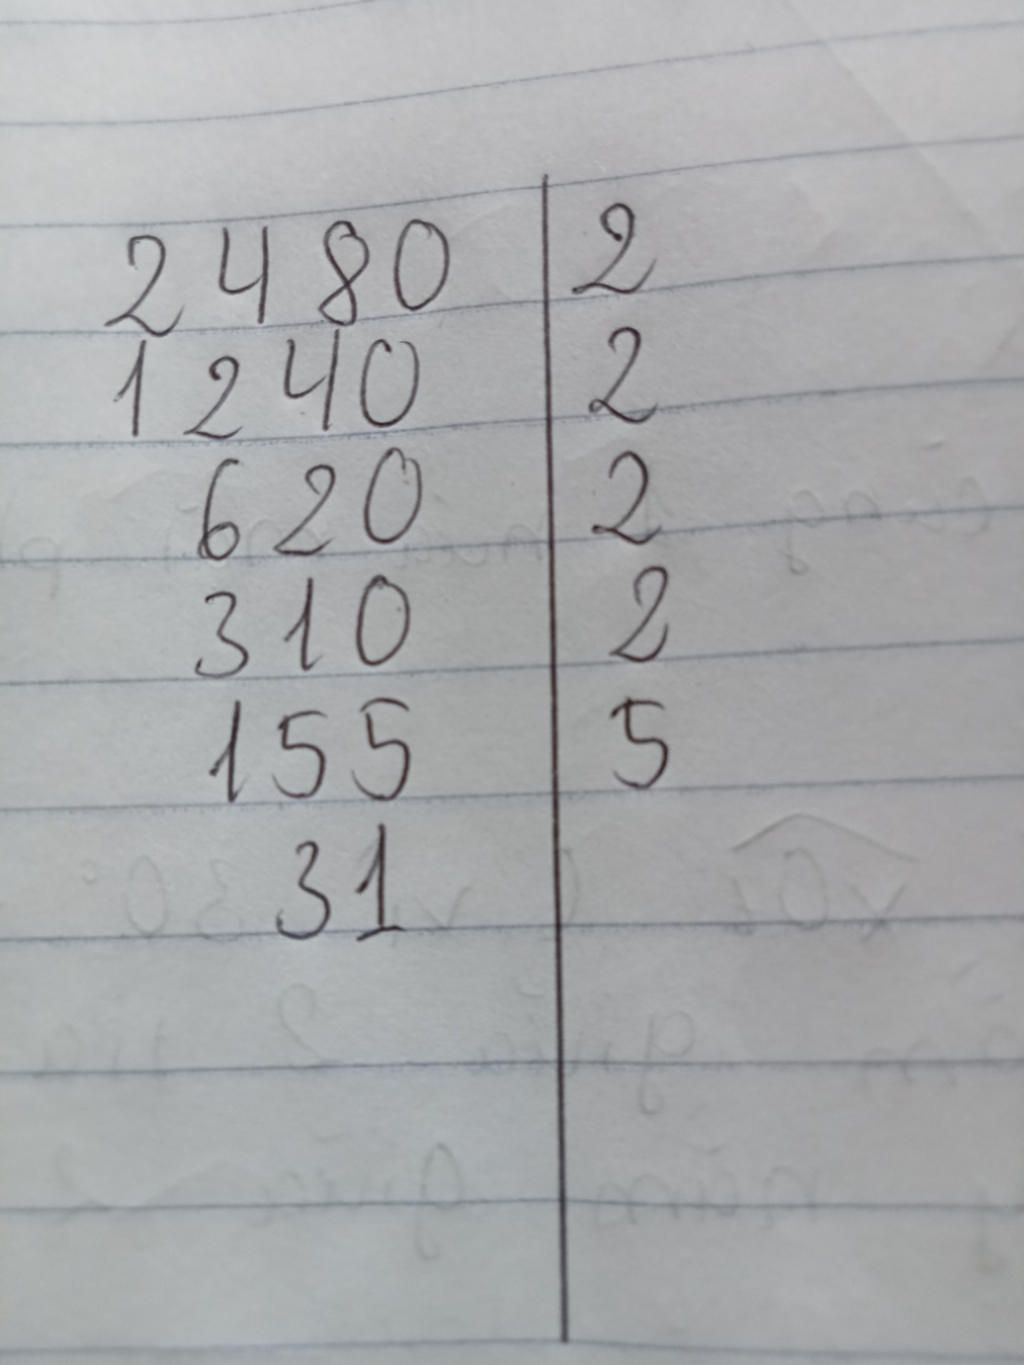 2480 | 2
1240 | 2
620 | 2
310 | 2
155 | 5
31 |